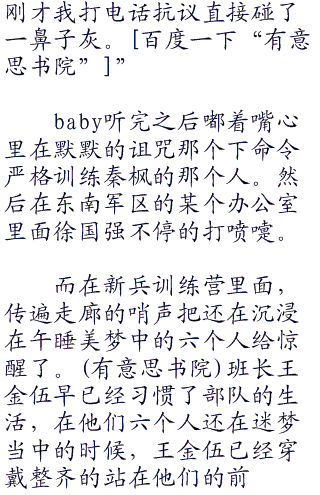 刚才我打电话抗议直接碰了
一鼻子灰。[百度一下“有意
思书院”]”
baby听完之后嘟着嘴心
里在默默的诅咒那个下命令
严格训练秦枫的那个人。然
后在东南军区的某个办公室
里面徐国强不停的打喷嚏。
而在新兵训练营里面，
传遍走廊的哨声把还在沉浸
在午睡美梦中的六个人给惊
醒了。(有意思书院)班长王
金伍早已经习惯了部队的生
活，在他们六个人还在迷梦
当中的时候，王金伍已经穿
戴整齐的站在他们的前